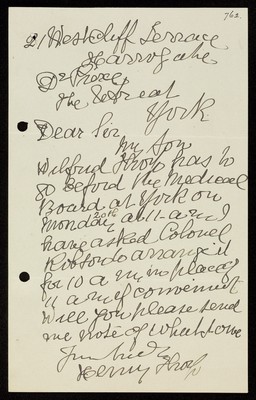 762.
21 Westcliff Terrace
Harrogate
Dr Pierce,
The Retreat
York
Dear Sir,
My Son
Wilfred Thorp has to
go before the Medical
Board at York on
Monday 20th at 11-am I
have asked Colonel
Robson to arrange it
for 10 a m in place of
11 am if convenient
Will you please send
me note of what time
Yours truly
Henry Thorp